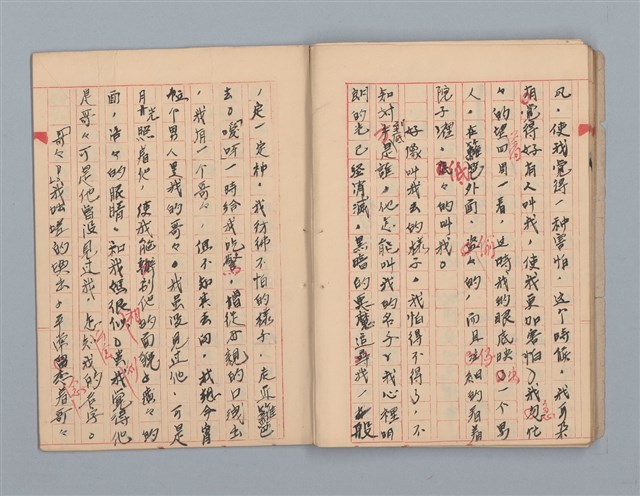 风。使我覺得一种害怕。这个時候。我耳朵
覺得好有人叫我，使我更加害怕，我急忙
々的望四周一看，这時我的眼底映一个男
人。在籬笆外面。偷々的，而且仔細的看着
院子裡。低々的叫我。
好像叫我去的樣子。我怕得不得了，不
知对到底是誰。他怎能叫我的名子，我心裡明
朗的老已經消滅，黑暗的惡魔這尋我，一般
，定一定神。我彷彿不怕的樣子。走近籬笆
去。「嗳」呀一時給我吃驚，增從母親的口說出
，我有一个哥々，但不知去向。我想今宵
這个男人里我的哥々。我虽沒見过他，可是
月光照着他，使我能夠別他的面貌，瘦々的
面，的眼睛。和我媽很似，我覺得他
是哥々可是他曾沒見过我，怎知我的名字。
「哥々」我的與出，平常思着哥々